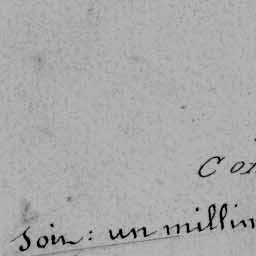 Coi
Soin : un millim